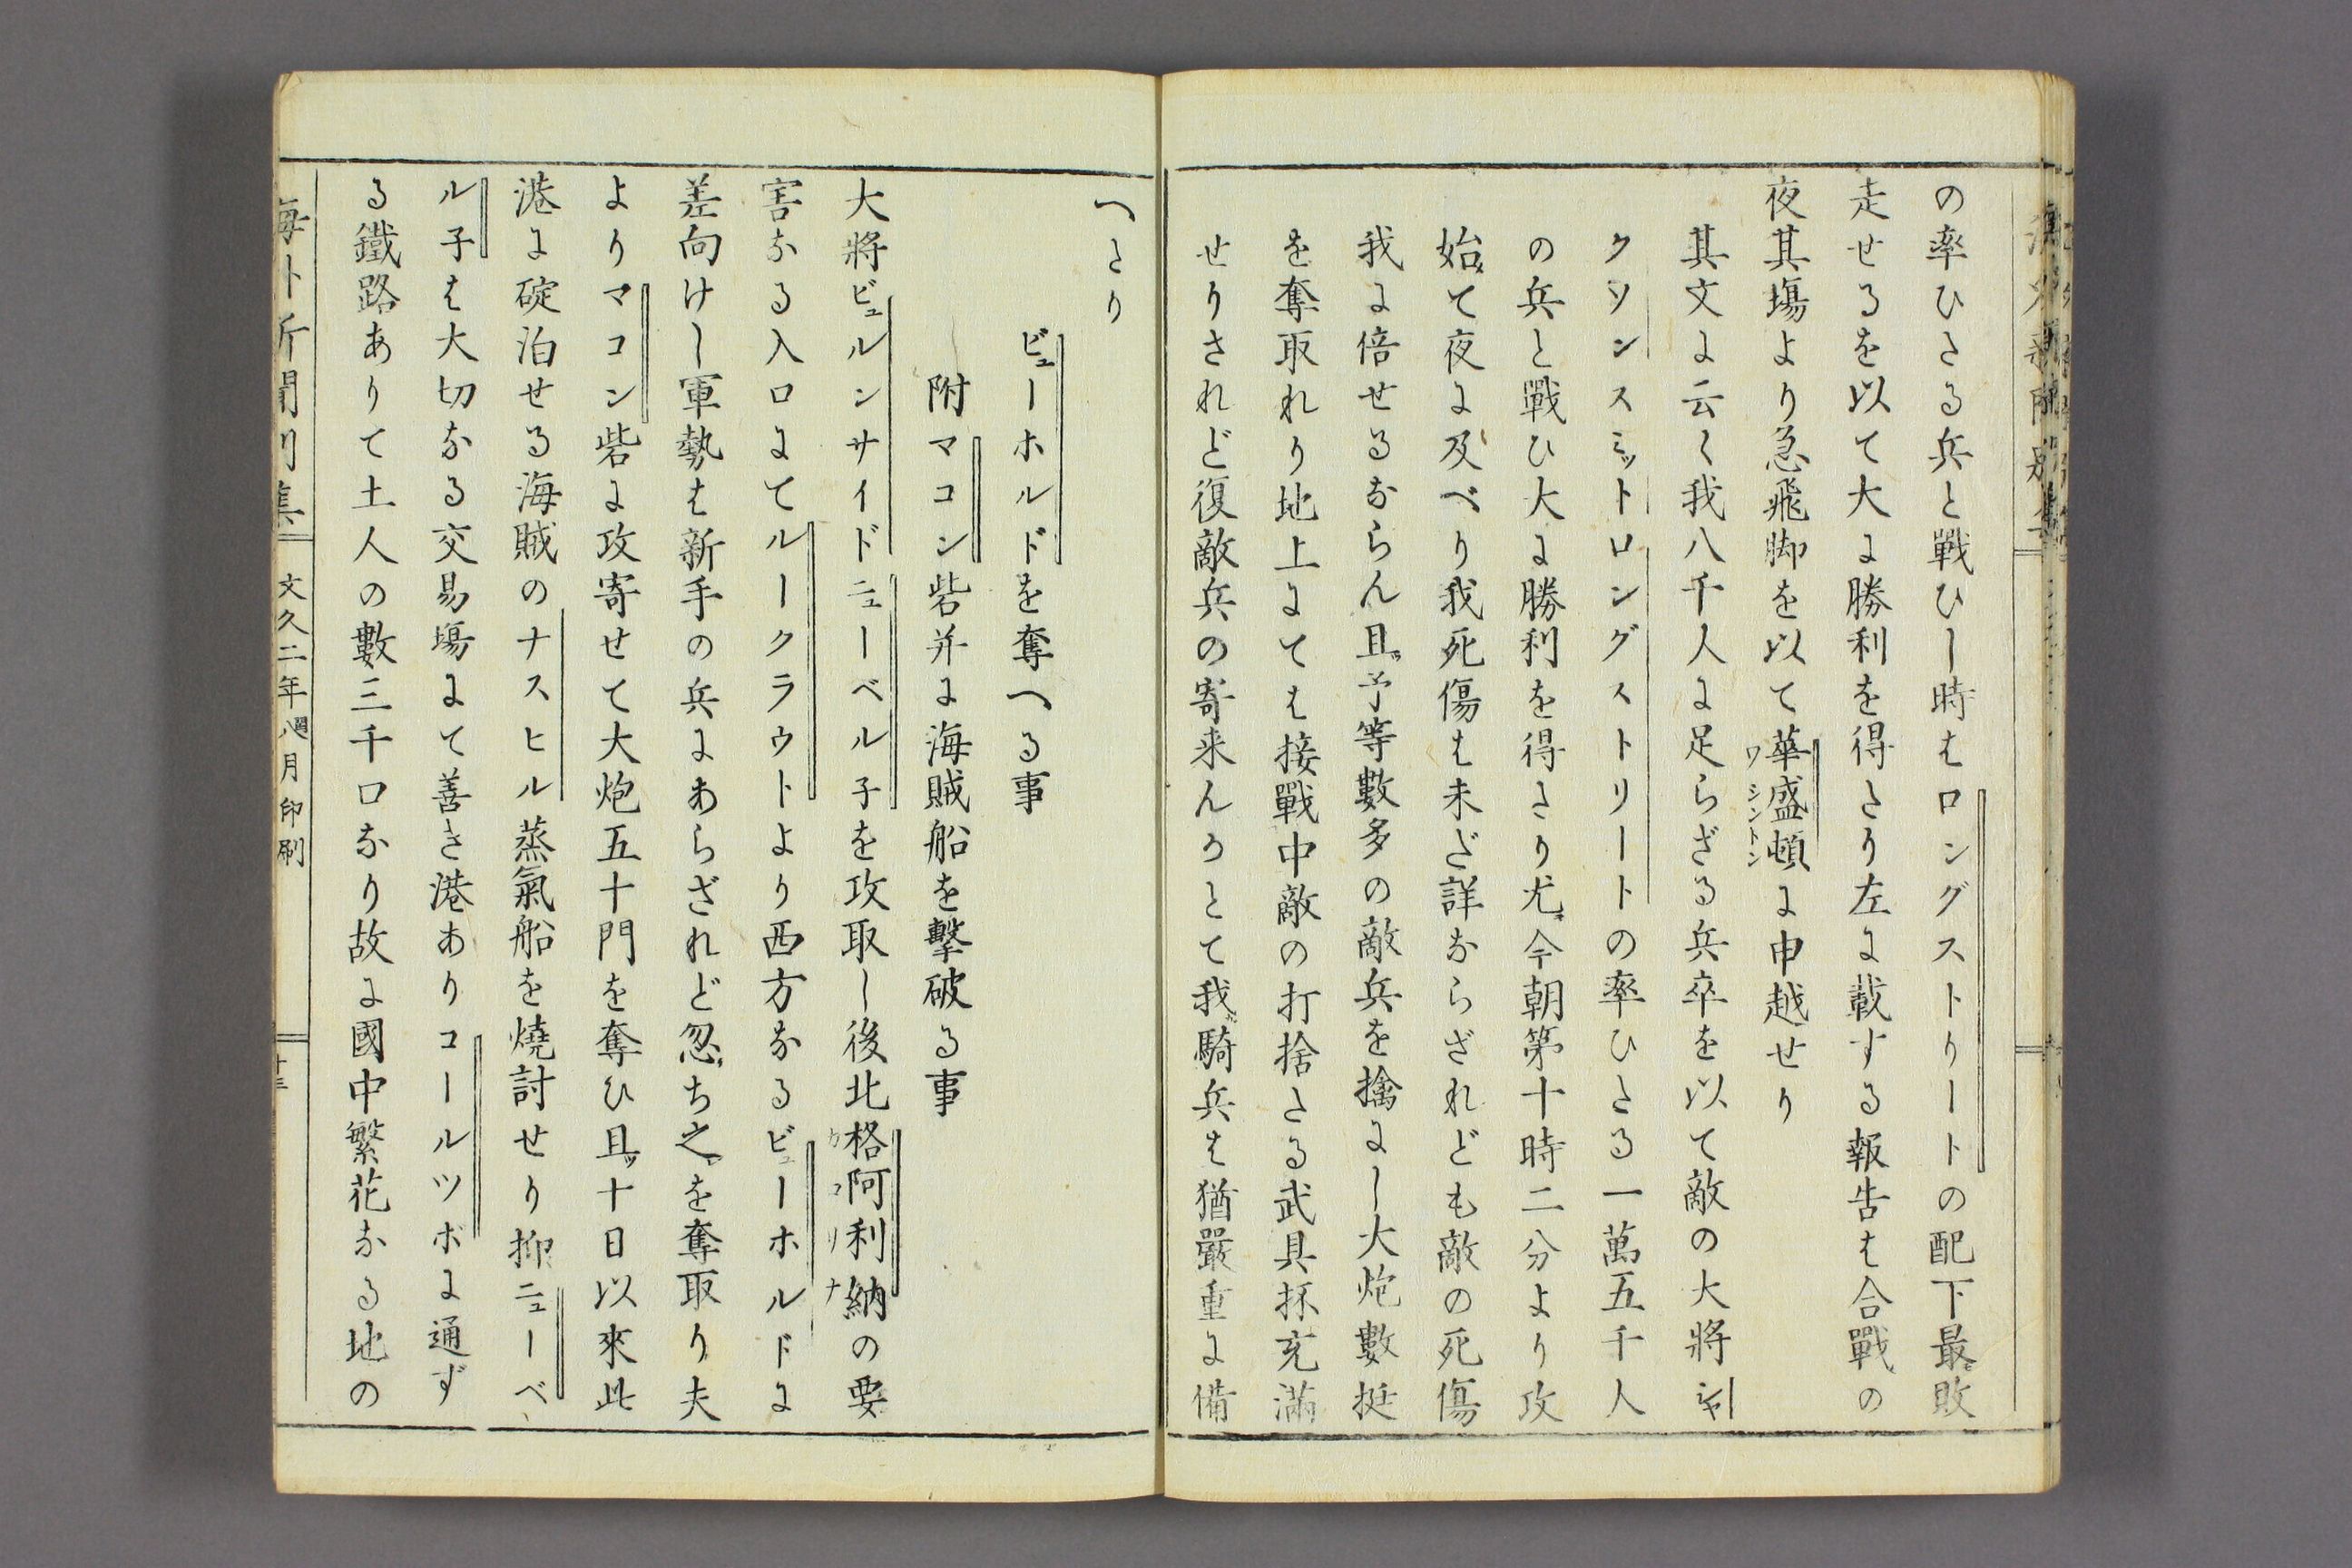 の率ひたる兵と戰ひし時はロングストリートの配下最モ敗
走せるを以て大に勝利を得たり左に載する報告は合戰の
夜其塲より急飛脚を以て華盛頓ワシントンに申越せり
其文に云く我八千人に足らざる兵卒を以て敵の大將ジャ
クソンスミットロングストリートの率ひたる一萬五千人
の兵と戰ひ大に勝利を得たり尤モ今朝第十時二分より攻
始メて夜に及べり我死傷は未だ詳ならざれども敵の死傷
我に倍せるならん且ツ予等數多の敵兵を擒にし大炮數挺
を奪取れり地上にては接戰中敵の打捨たる武具抔充滿
せりされど復敵兵の寄来んかとて我ガ騎兵は猶嚴重に備
へたり
ビューホルドを奪へる事
附マコン砦并に海賊船を擊破る事
大將ビュルンサイドニューベル子を攻取し後北格阿利納カコリナの要
害なる入口にてルークラウトより西方なるビューホルドに
差向けし軍勢は新手の兵にあらざれど忽チち之レを奪取り夫
よりマコン砦に攻寄せて大炮五十門を奪ひ且ツ十日以來此
港に碇泊せる海賊のナスヒル蒸氣船を燒討せり抑ニューベ
ル子は大切なる交易塲にて善き港ありコールツボに通ず
る鐵路ありて土人の數三千口なり故に國中繁花なる地の
海外新聞別集 文久二年閏八月印刷 十三